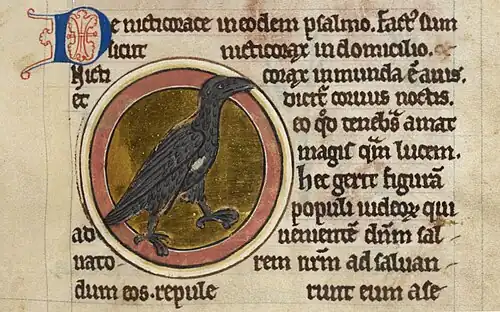 De nicticorace in eodem psalmo. Fact' sum
sicut nicticorax in domicilio.
Nicti corax inmunda ē auis.
et dicit̄ coruus noctis.
eo qd̓ tenebͣs amat
magis qm̄ lucem.
hec gerit figurā
populi iudeoꝝ qui
ad uenientē dn̄m sal
uato rem nr̄m ad saluan
dum eos. repule runt eum a se